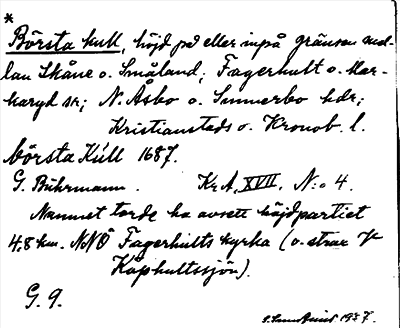 *
Börsta kull, höjd på eller inpå gränsen mel-
lan Skåne o. Småland; Fagerhult o. Mar-
karyd sn; N. Åsbo o. Sunnerbo hdr;
Kristianstads o. Kronob. l.
börsta Kúll 1687.
G. Buhrmann. Kr. A, XVII, N:o 4.
Namnet torde ha avsett höjdpartiet
4,8 km. NNÖ Fagerhults kyrka (o. strax V
Käphultssjön).
G. 9.
1937.